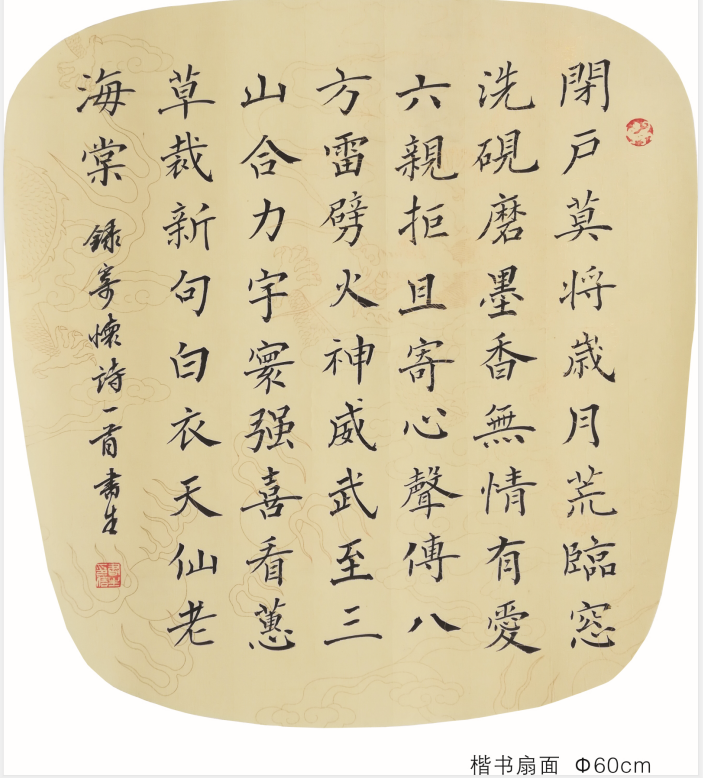 閉戸莫将歳月荒臨窓
洗硯磨墨香無情有愛
六親拒且寄心聲傳八
方雷劈火神威武至三
山合力宇寰强喜看蕙
草裁新句白衣天仙老
海棠
録寄懷詩一首書生
楷书扇面 Φ60cm